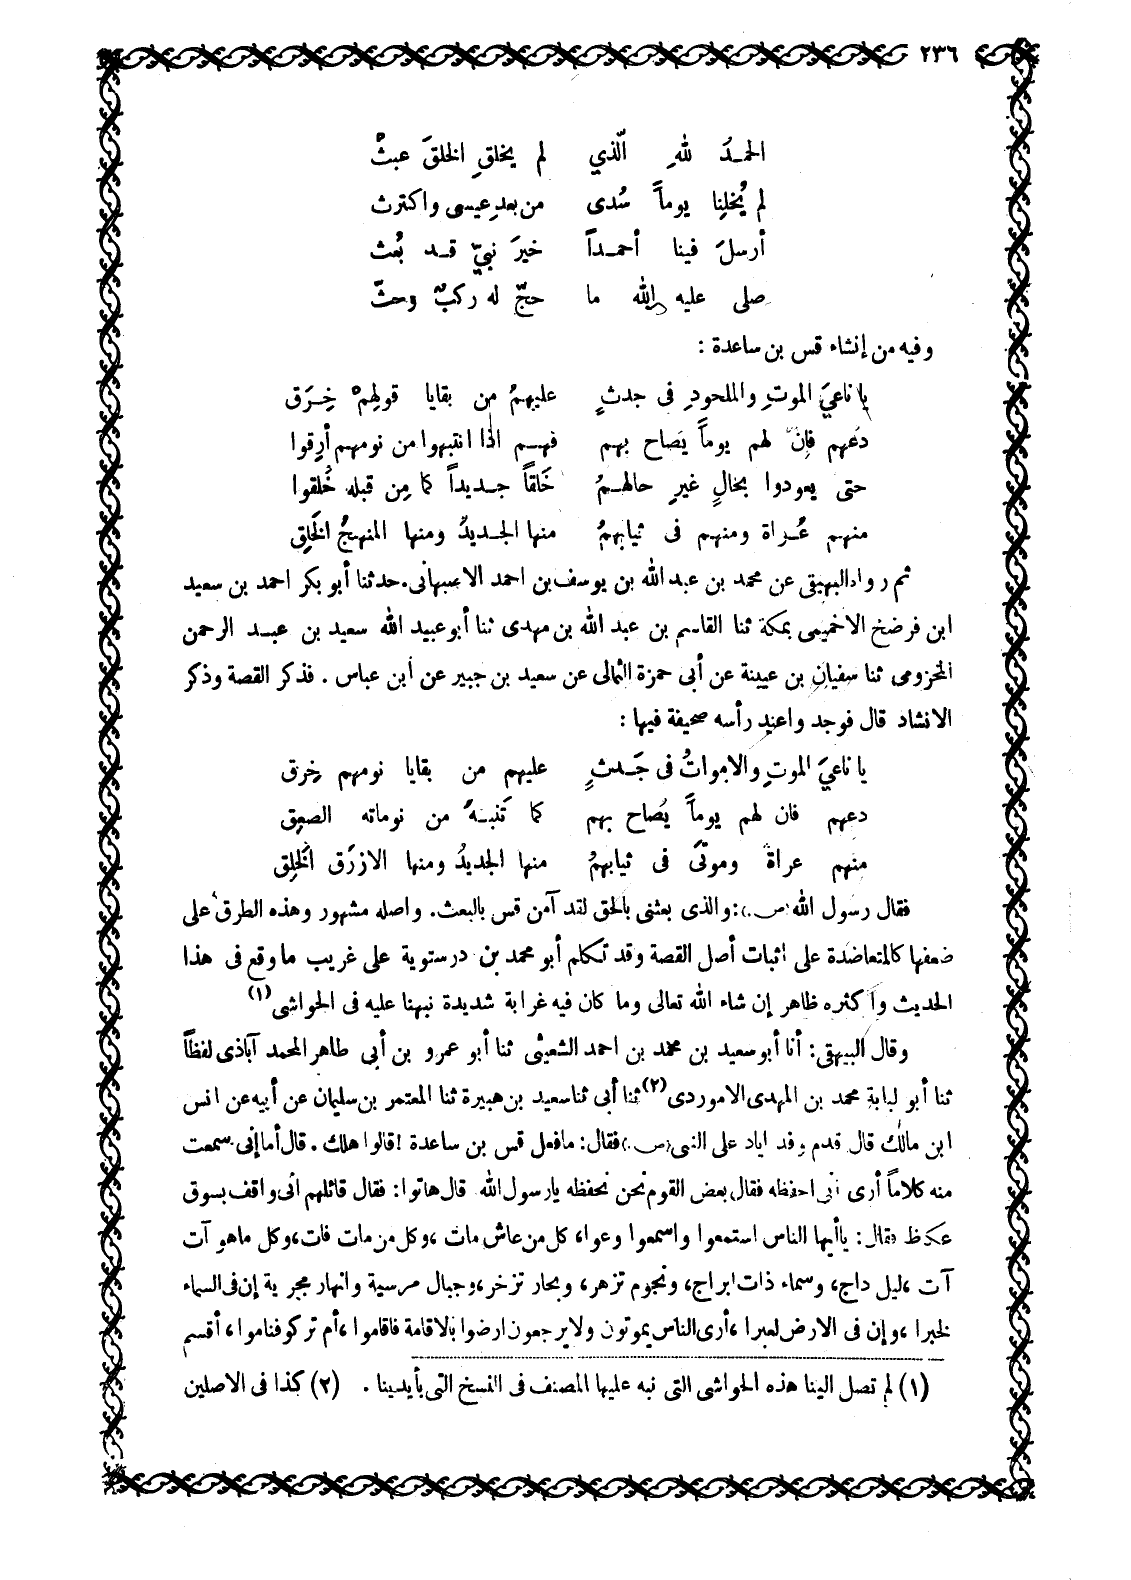 ٢٣٦
الحمدُ للهِ الّذي لم يخلقِ الخلقَ عبثْ
لم يُخلِنا يوماً سُدى من بعدِ عيسى واكترث
أرسلَ فينا أحمداً خيرَ نبيّ قد بُعث
صلى عليه الله ما حجّ له ركبٌ وحثّ
وفيه من إنشاء قس بن ساعدة :
يا ناعيَ الموتِ والملحودِ فى جدثٍ عليهمُ من بقايا قولِهمْ خِرَق
دَعهم فإنّ لهم يوماً يَصاح بهم فهم اذا انتبهوا من نومهم أرِقوا
حتى يعودوا بحالٍ غيرِ حالهمُ خَلقاً جديداً كما مِن قبله خُلقوا
منهم عُراة ومنهم فى ثيابهمُ منها الجديدُ ومنها المنهجُ الخَلِق
ثم رواه البيهقى عن محمد بن عبد الله بن يوسف بن احمد الاصبهانى . حدثنا أبو بكر احمد بن سعيد
ابن فرضخ الاخميمى بمكة ثنا القاسم بن عبد الله بن مهدى ثنا أبو عبيد الله سعيد بن عبد الرحمن
المخزومى ثنا سفيان بن عيينة عن أبى حمزة الثمالى عن سعيد بن جبير عن ابن عباس . فذكر القصة وذكر
الانشاد قال فوجدوا عند رأسه صحيفة فيها :
يا ناعيَ الموتِ والامواتُ فى جَدثٍ عليهم من بقايا نومهم خِرق
دعهم فان لهم يوماً يُصاح بهم كما تَنبه من نوماته الصعِق
منهم عراةٌ وموتَى فى ثيابهمُ منها الجديدُ ومنها الازرَق الخَلِق
فقال رسول الله (ص.) : والذى بعثنى بالحق لقد آمن قس بالبعث. واصله مشهور وهذه الطرق على
ضعفها كالمتعاضدة على اثبات أصل القصة وقد تكلم أبو محمد بن درستوية على غريب ما وقع فى هذا
الحديث وأكثره ظاهر إن شاء الله تعالى وما كان فيه غرابة شديدة نبهنا عليه فى الحواشى (١)
وقال البيهقى : أنا أبو سعيد بن محمد بن احمد الشعيثى ثنا أبو عمرو بن أبى طاهر المحمد آباذى لفظاً
ثنا أبو لبابة محمد بن المهدى الاموردى (٢) ثنا أبى ثنا سعيد بن هبيرة ثنا المعتمر بن سليمان عن أبيه عن انس
ابن مالك قال قدم وفد اياد على النبى (ص.) فقال : ما فعل قس بن ساعدة ! قالوا هلك . قال أما إنى سمعت
منه كلاماً أرى أنى احفظه فقال بعض القوم نحن نحفظه يا رسول الله قال هاتوا : فقال قائلهم انى واقف بسوق
عكاظ فقال : يا أيها الناس استمعوا واسمعوا وعوا، كل من عاش مات ، وكل من مات فات، وكل ما هو آت
آت ، ليل داج، وسماء ذات ابراج، ونجوم تزهر، وبحار تزخر، وجبال مرسية وانهار مجرية إن فى السماء
لخبرا ، وإن فى الارض لعبرا ، أرى الناس يموتون ولا يرجعون ارضوا بالاقامة فاقاموا ، أم تركوا فناموا، أقسم
(١) لم تصل الينا هذه الحواشى التى نبه عليها المصنف فى النسخ التى بأيدينا . (٢) كذا فى الاصلين